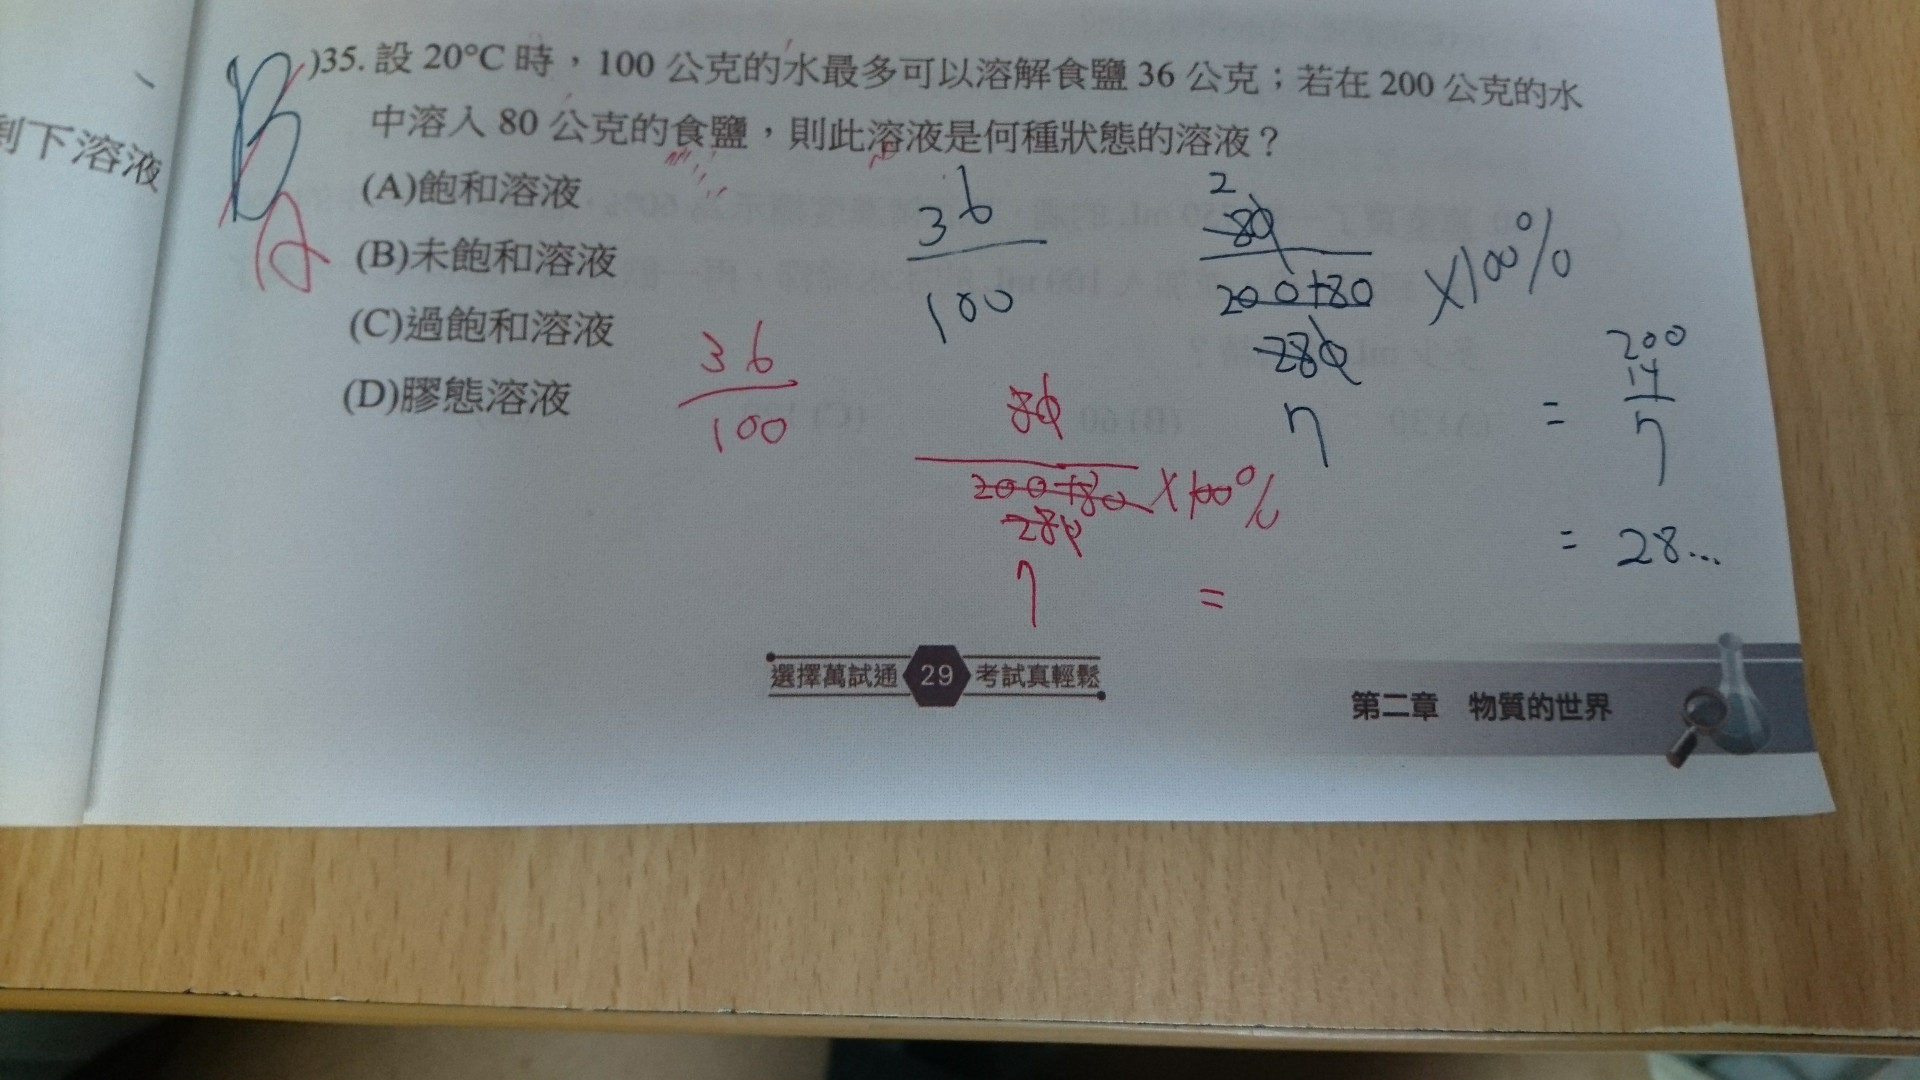 B
A
)35. 設 20°C 時，100 公克的水最多可以溶解食鹽 36 公克；若在 200 公克的水
中溶入 80 公克的食鹽，則此溶液是何種狀態的溶液？
(A)飽和溶液
(B)未飽和溶液
(C)過飽和溶液
(D)膠態溶液
剩下溶液
36
100
2
80
200+80
280
7
×100%
200
14
= 7
= 28...
36
100
80
200+80 ×100%
280
7 =
選擇萬試通 29 考試真輕鬆
第二章 物質的世界